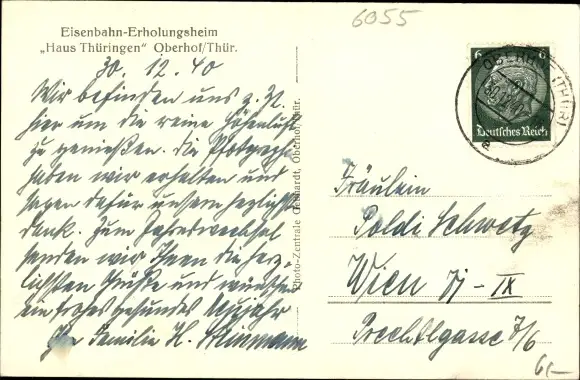 6055
Eisenbahn-Erholungsheim
„Haus Thüringen" Oberhof/Thür.
30. 12. 40
Wir befinden uns z. Zt.
hier um die reine Höhenluft
zu genießen. Die Photographie
haben wir erhalten und
sagen dafür unsern herzlichsten
Dank. Zum Jahreswechsel
senden wir Ihnen die herz-
lichsten Grüße und wünschen
ein frohes gesundes Neujahr
Ihre Familie H.
Photo-Zentrale Gebhardt, Oberhof/Thür.
6 6
Deutsches Reich
(THÜR)
Fräulein
Poldi Schwetz
Wien IX
Prechtlgasse 7/6
6,-